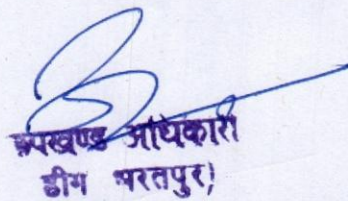 उपखण्ड अधिकारी
डीग भरतपुर)